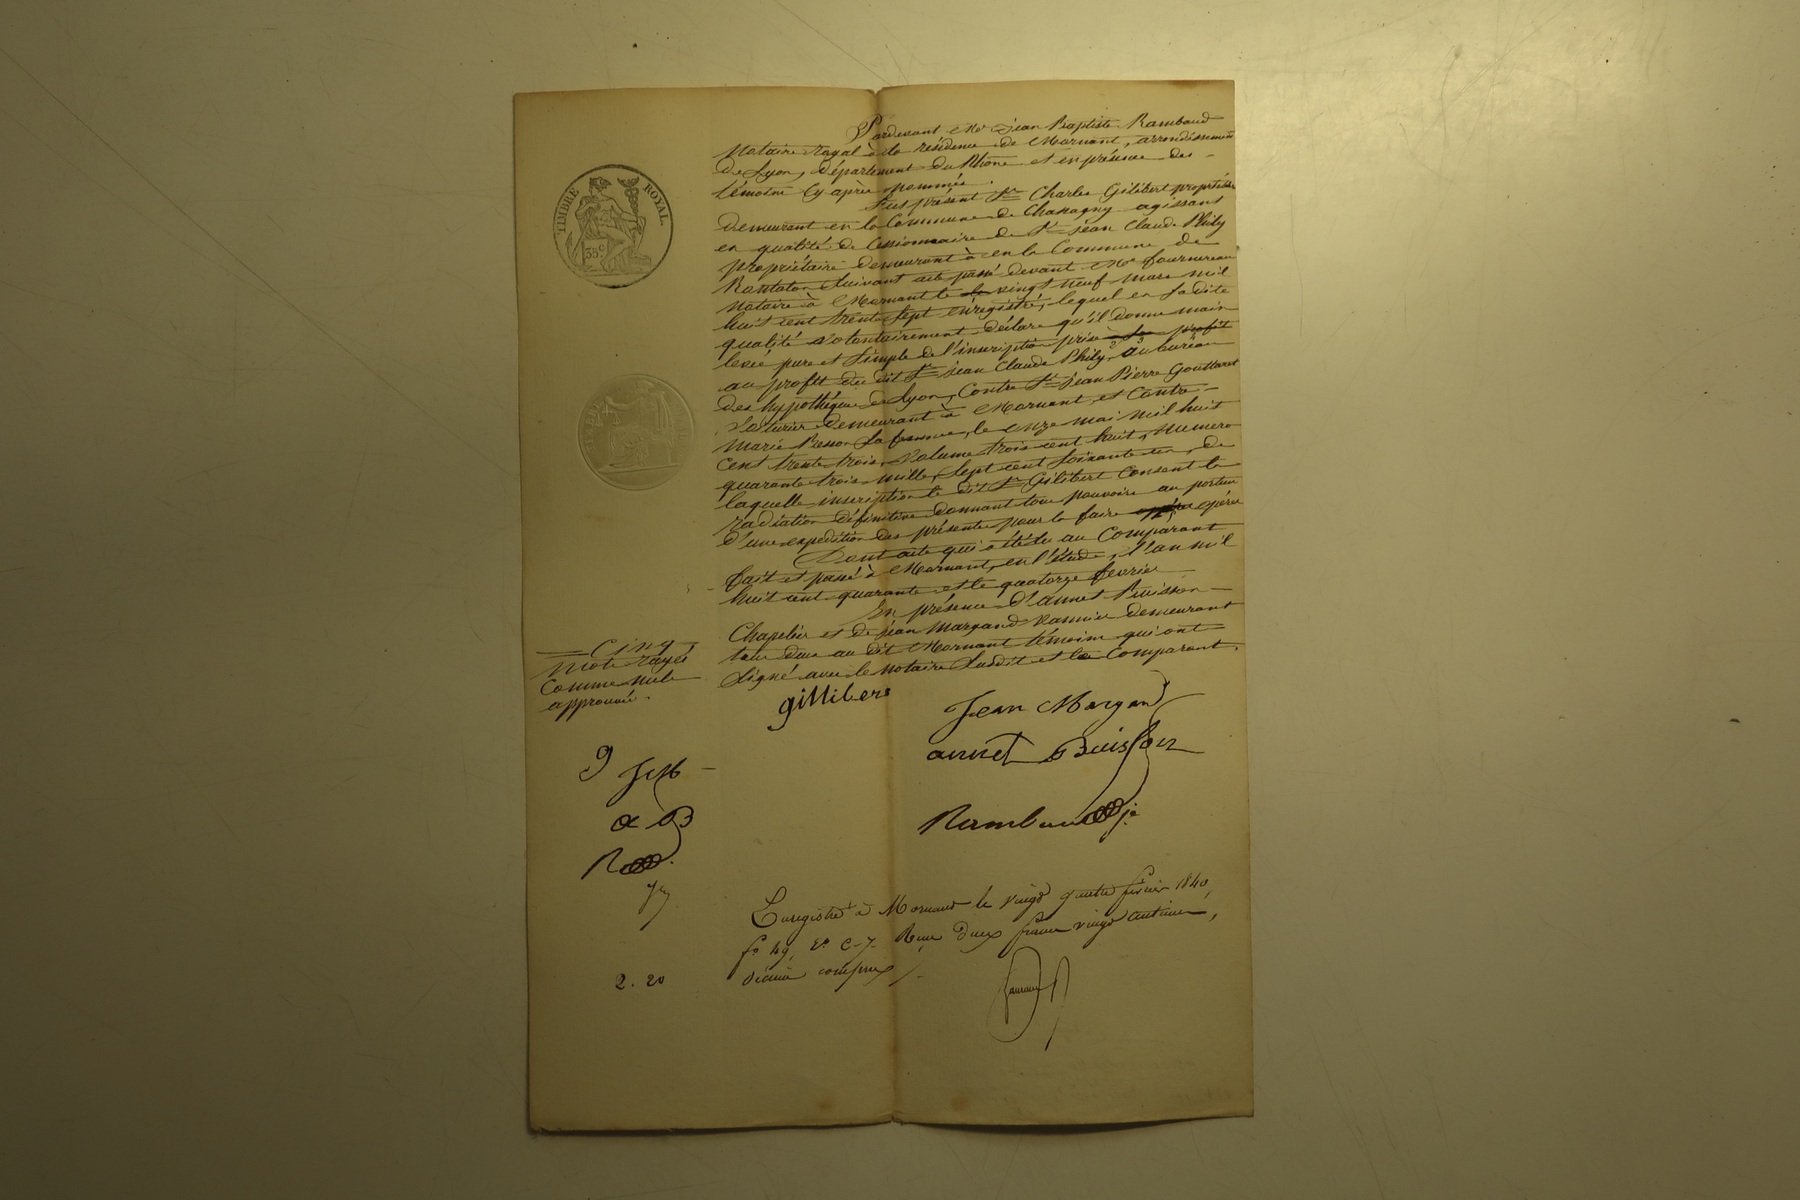 TIMBRE ROYAL
35 c
Pardevant Me Jean Baptiste Rambaud
Notaire royal à la résidence de Mornant, arrondissement
de Lyon, département du Rhône et en présence des
témoins cy après nommés.
Fut présent Sr Charles Gilibert propriétaire
demeurant en la Commune de Chassagny agissant
en qualité de Cessionnaire de Sr Jean Claude Phily
propriétaire demeurant à en la Commune de
Rontalon suivant acte passé devant Me fournereau
notaire à Mornant le vingt neuf mars mil
huit cent trente sept enregistré, lequel en sa dite
qualité volontairement déclare qu'il donne main
levée pure et simple de l'inscription prise à son profit
au profit du dit Sr Jean Claude Phily, au bureau
des hypothèques de Lyon, Contre Sr Jean Pierre Gouttard
voiturier demeurant à Mornant, et Contre
Marie Besson sa femme, le onze mai mil huit
cent trente trois, volume trois cent huit, numéro
quarante trois mille, sept cent soixante un, de
laquelle inscription le dit Sr Gilibert consent la
radiation définitive donnant tous pouvoirs au porteur
d'une expédition des présentes pour la faire opérer
Dont acte qui a été lu au Comparant
fait et passé à Mornant, en l'étude, l'an mil
huit cent quarante et le quatorze février
En présence d'annet Buisson
Chapelier et de Jean Margand Vannier demeurant
tous deux au dit Mornant témoins qui ont
signé avec le notaire susdit et le Comparant.
Cinq
mots rayés
comme nuls
approuvé.
gillibert
Jean Margand
annet Buisson
Rambaud
9
a B
R
Enregistré à Mornant le vingt quatre février 1840,
fo 49, Vo C. 7. Reçu deux francs vingt centimes,
décime compris
2. 20